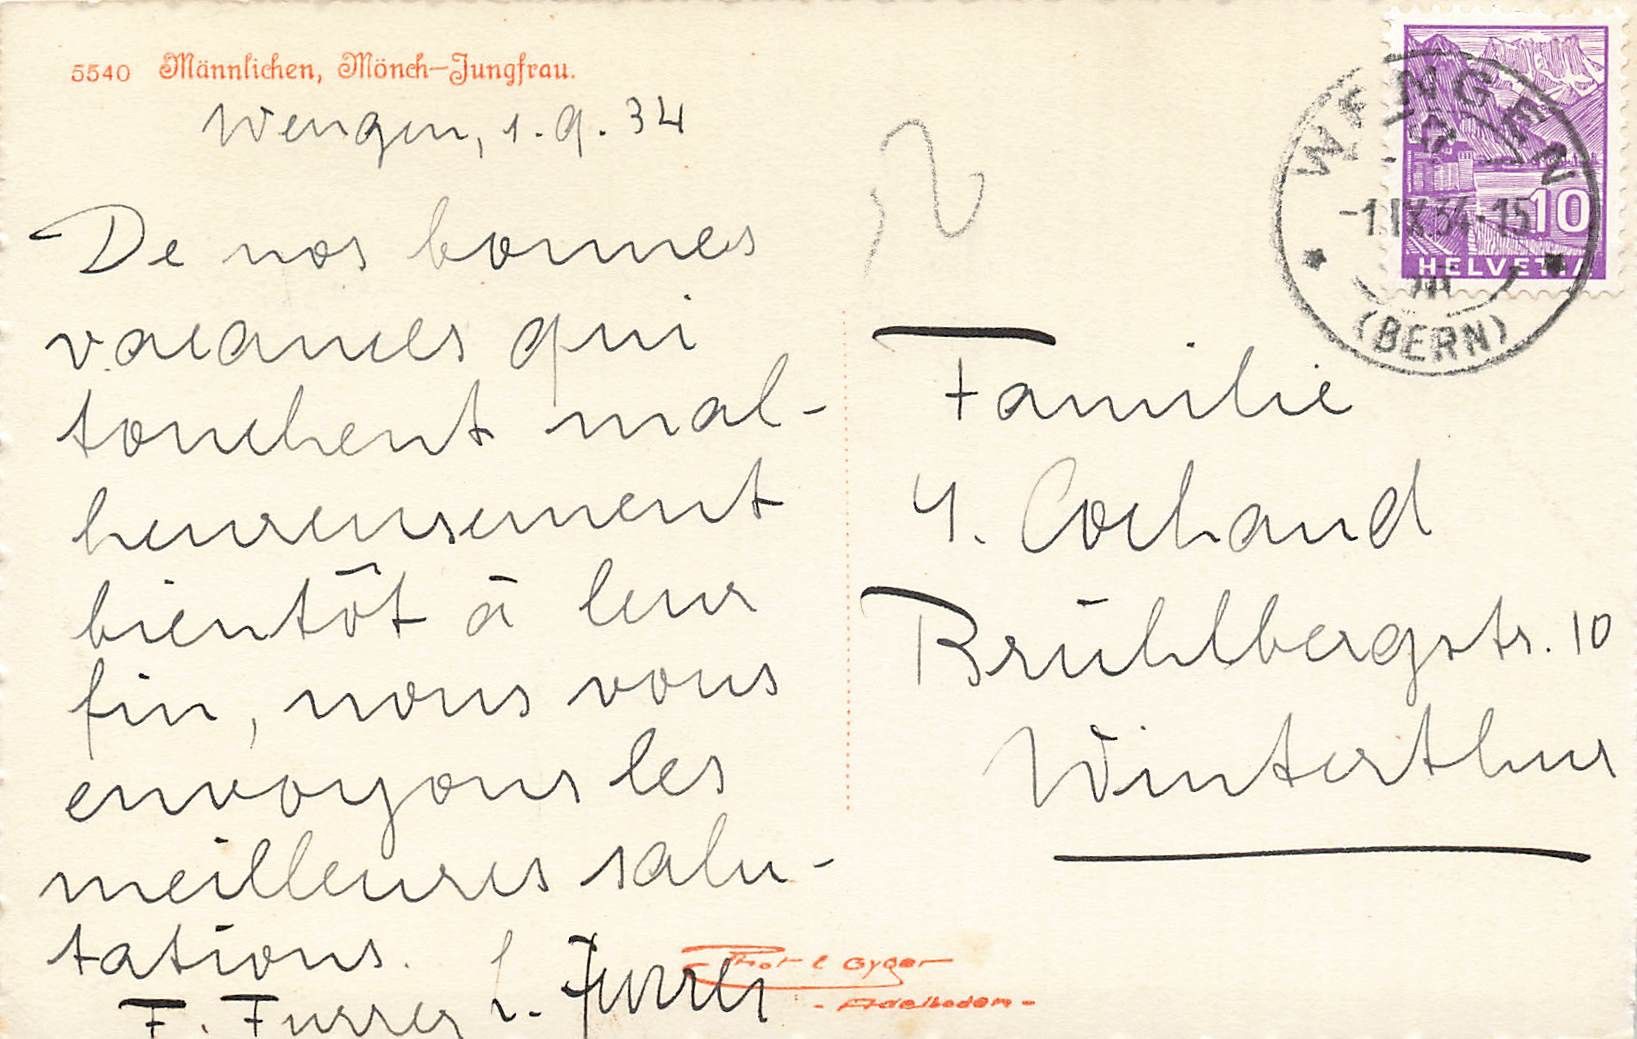 5540 Männlichen, Mönch-Jungfrau.
Wengen, 1.9.34
De nos bonnes
vacances qui
touchent mal-
heureusement
bientôt à leur
fin, nous vous
envoyons les
meilleures salu-
tations.
F. Furrer h. Furrer
WENGEN
-1.IX.34-15
(BERN)
10
HELVETIA
Familie
Y. Cochand
Brühlbergstr. 10
Winterthur
Phot E Gyger
- Adelboden -